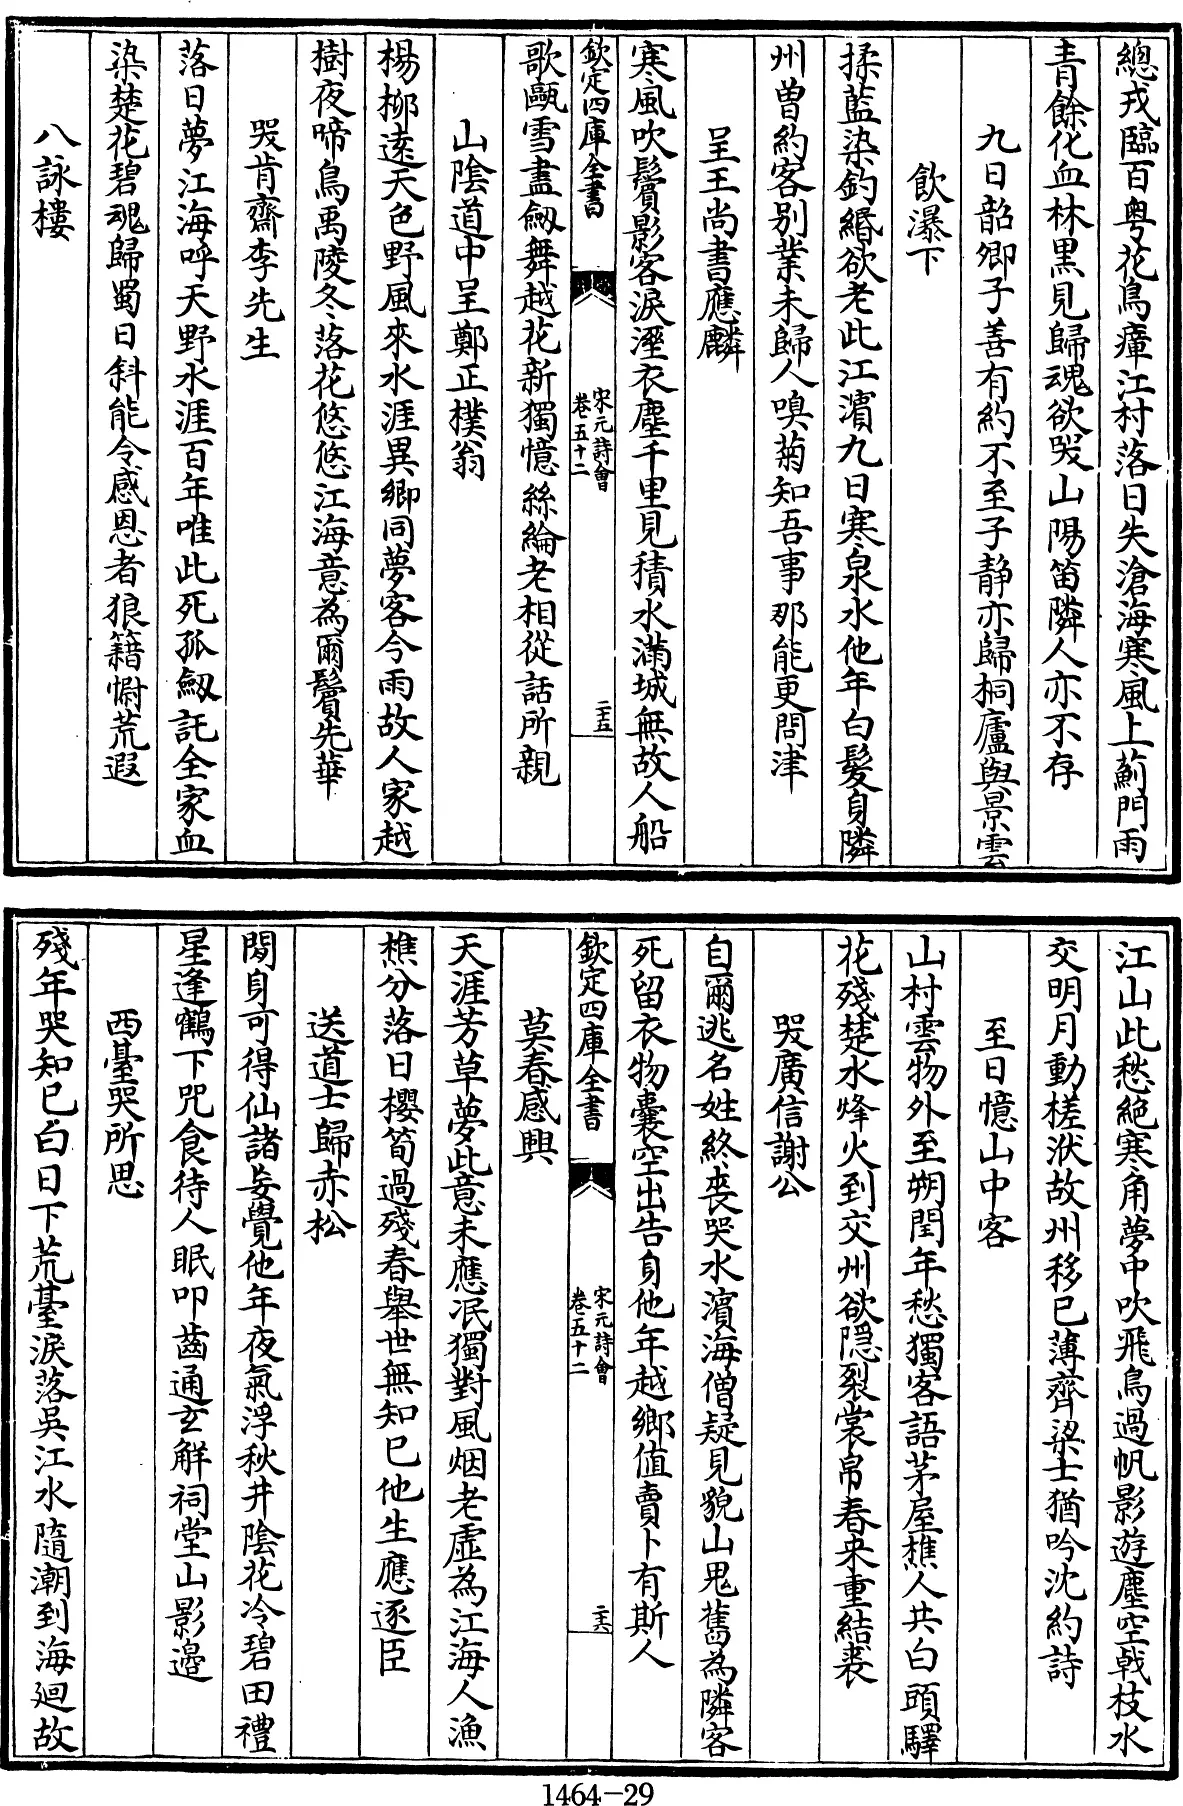 總戎臨百粤花鳥瘴江村落日失滄海寒風上薊門雨
青餘化血林黒見歸魂欲哭山陽笛隣人亦不存
九日韶卿子善有約不至子静亦歸桐廬與景雲
飲瀑下
揉藍染釣緡欲老此江濵九日寒泉水他年白髮身隣
州曾約客别業未歸人嗅菊知吾事那能更問津
呈王尚書應麟
寒風吹鬢影客淚溼衣塵千里見積水滿城無故人船
欽定四庫全書
宋元詩會
卷五十二
二十五
歌甌雪盡劔舞越花新獨憶絲綸老相從話所親
山陰道中呈鄭正樸翁
楊柳逺天色野風來水涯異鄉同夢客今雨故人家越
樹夜啼鳥禹陵冬落花悠悠江海意為爾鬢先華
哭肯齋李先生
落日夢江海呼天野水涯百年唯此死孤劔託全家血
染楚花碧魂歸蜀日斜能令感恩者狼籍慰荒遐
八詠樓
江山此愁絶寒角夢中吹飛鳥過帆影遊塵空戟枝水
交明月動槎洑故州移已薄齊梁士猶吟沈約詩
至日憶山中客
山村雲物外至朔閏年愁獨客語茅屋樵人共白頭驛
花殘楚水烽火到交州欲隠裂裳帛春来重結裘
哭廣信謝公
自爾逃名姓終喪哭水濵海僧疑見貌山鬼舊為隣客
死留衣物囊空出告身他年越鄉值賣卜有斯人
欽定四庫全書
宋元詩會
卷五十二
二十六
莫春感興
天涯芳草夢此意未應泯獨對風烟老虚為江海人漁
樵分落日櫻筍過殘春舉世無知已他生應逐臣
送道士歸赤松
閒身可得仙諸妄覺他年夜氣浮秋井陰花冷碧田禮
星逢鶴下咒食待人眠叩齒通玄解祠堂山影邉
西臺哭所思
殘年哭知已白日下荒臺淚落吳江水隨潮到海廻故
1464-29